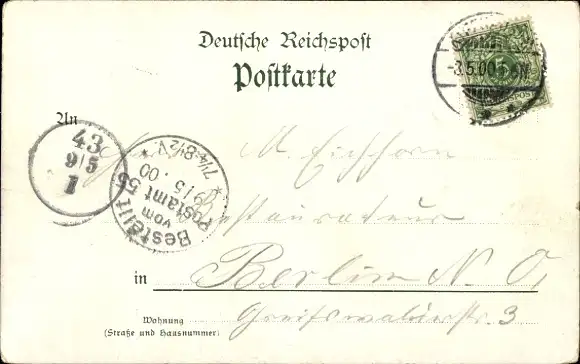 Deutsche Reichspost
Postkarte
-3.5.00
5
An
43
9/5
1
Bestellt
vom
Postamt 55
9/5.00
7¼-8½V.
M. Eichhorn
Restaurateur
in Berlin N. O.
Wohnung
(Straße und Hausnummer)
Greifswalderstr. 3